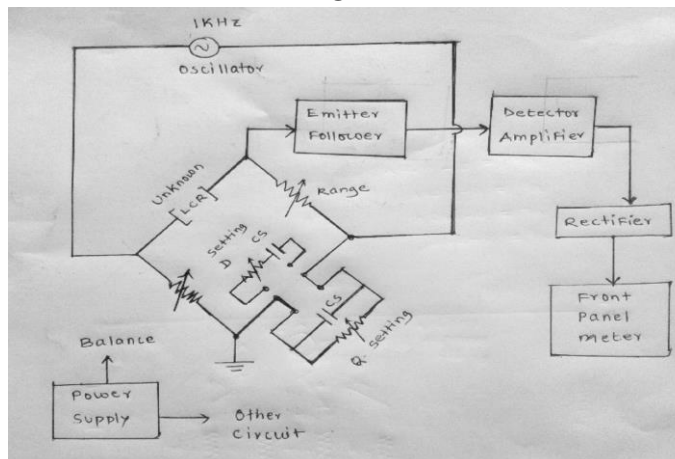 1KHz
Oscillator
Emitter
Follower
Detector
Amplifier
Unknown
LCR
Range
Rectifier
Setting
D
CS
CS
Q-setting
Front
Panel
meter
Balance
Power
Supply
Other
Circuit